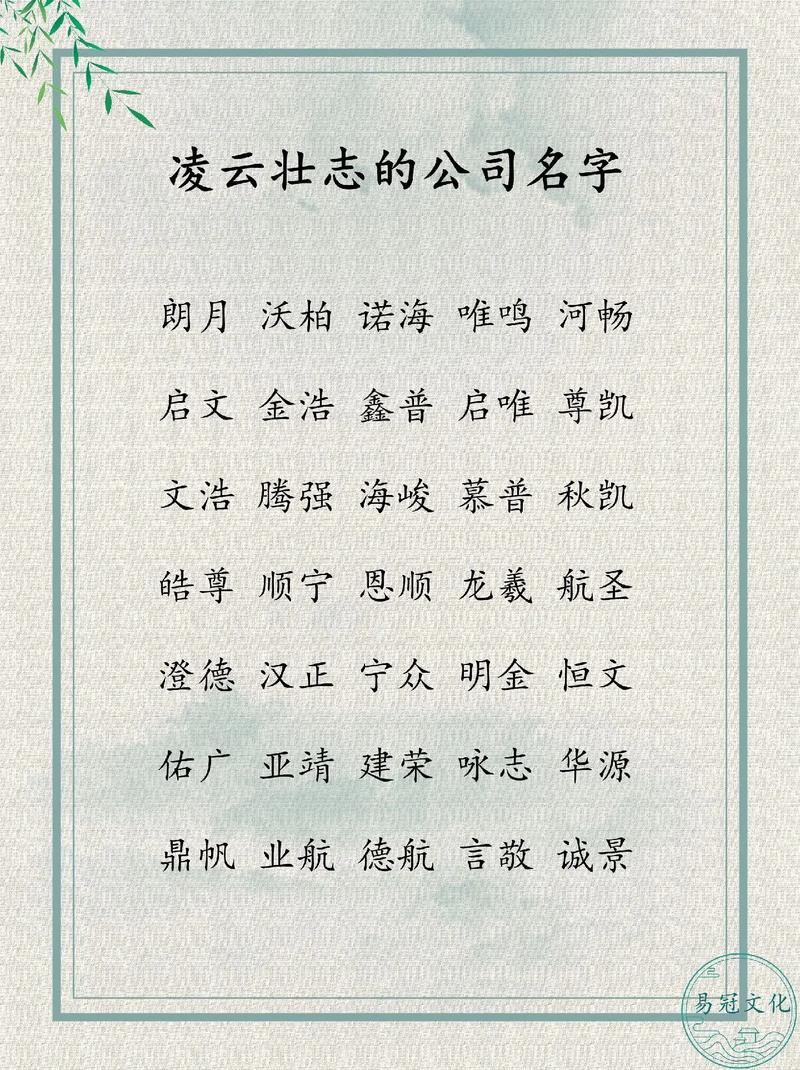 凌云壮志的公司名字
朗月 沃柏 诺海 唯鸣 河畅
启文 金浩 鑫普 启唯 尊凯
文浩 腾强 海峻 慕普 秋凯
皓尊 顺宁 恩顺 龙羲 航圣
澄德 汉正 宁众 明金 恒文
佑广 亚靖 建荣 咏志 华源
鼎帆 业航 德航 言敬 诚景
易冠文化